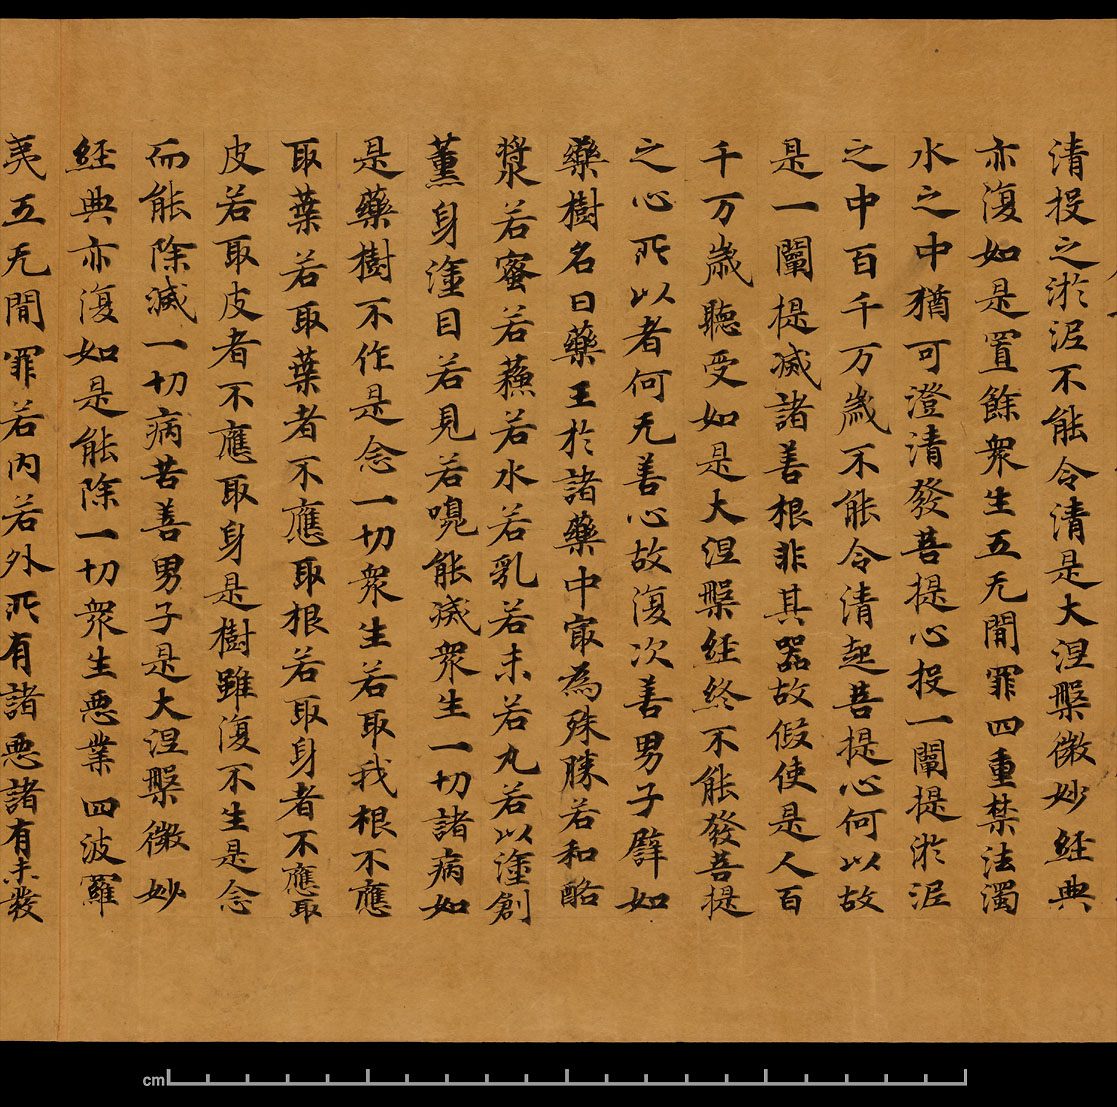 清投之淤泥不能令清是大涅槃微妙經典
亦復如是置餘衆生五无間罪四重禁法濁
水之中猶可澄清發菩提心投一闡提淤泥
之中百千万歲不能令清起菩提心何以故
是一闡提滅諸善根非其器故假使是人百
千万歲聽受如是大涅槃經終不能發菩提
之心所以者何无善心故復次善男子譬如
藥樹名曰藥王於諸藥中寂為殊勝若和酪
漿若蜜若蘓若水若乳若末若丸若以塗創
薰身塗目若見若嗅能滅衆生一切諸病如
是藥樹不作是念一切衆生若取我根不應
取葉若取葉者不應取根若取身者不應取
皮若取皮者不應取身是樹雖復不生是念
而能除滅一切病苦善男子是大涅槃微妙
經典亦復如是能除一切衆生惡業四波羅
夷五无間罪若內若外所有諸惡諸有未發